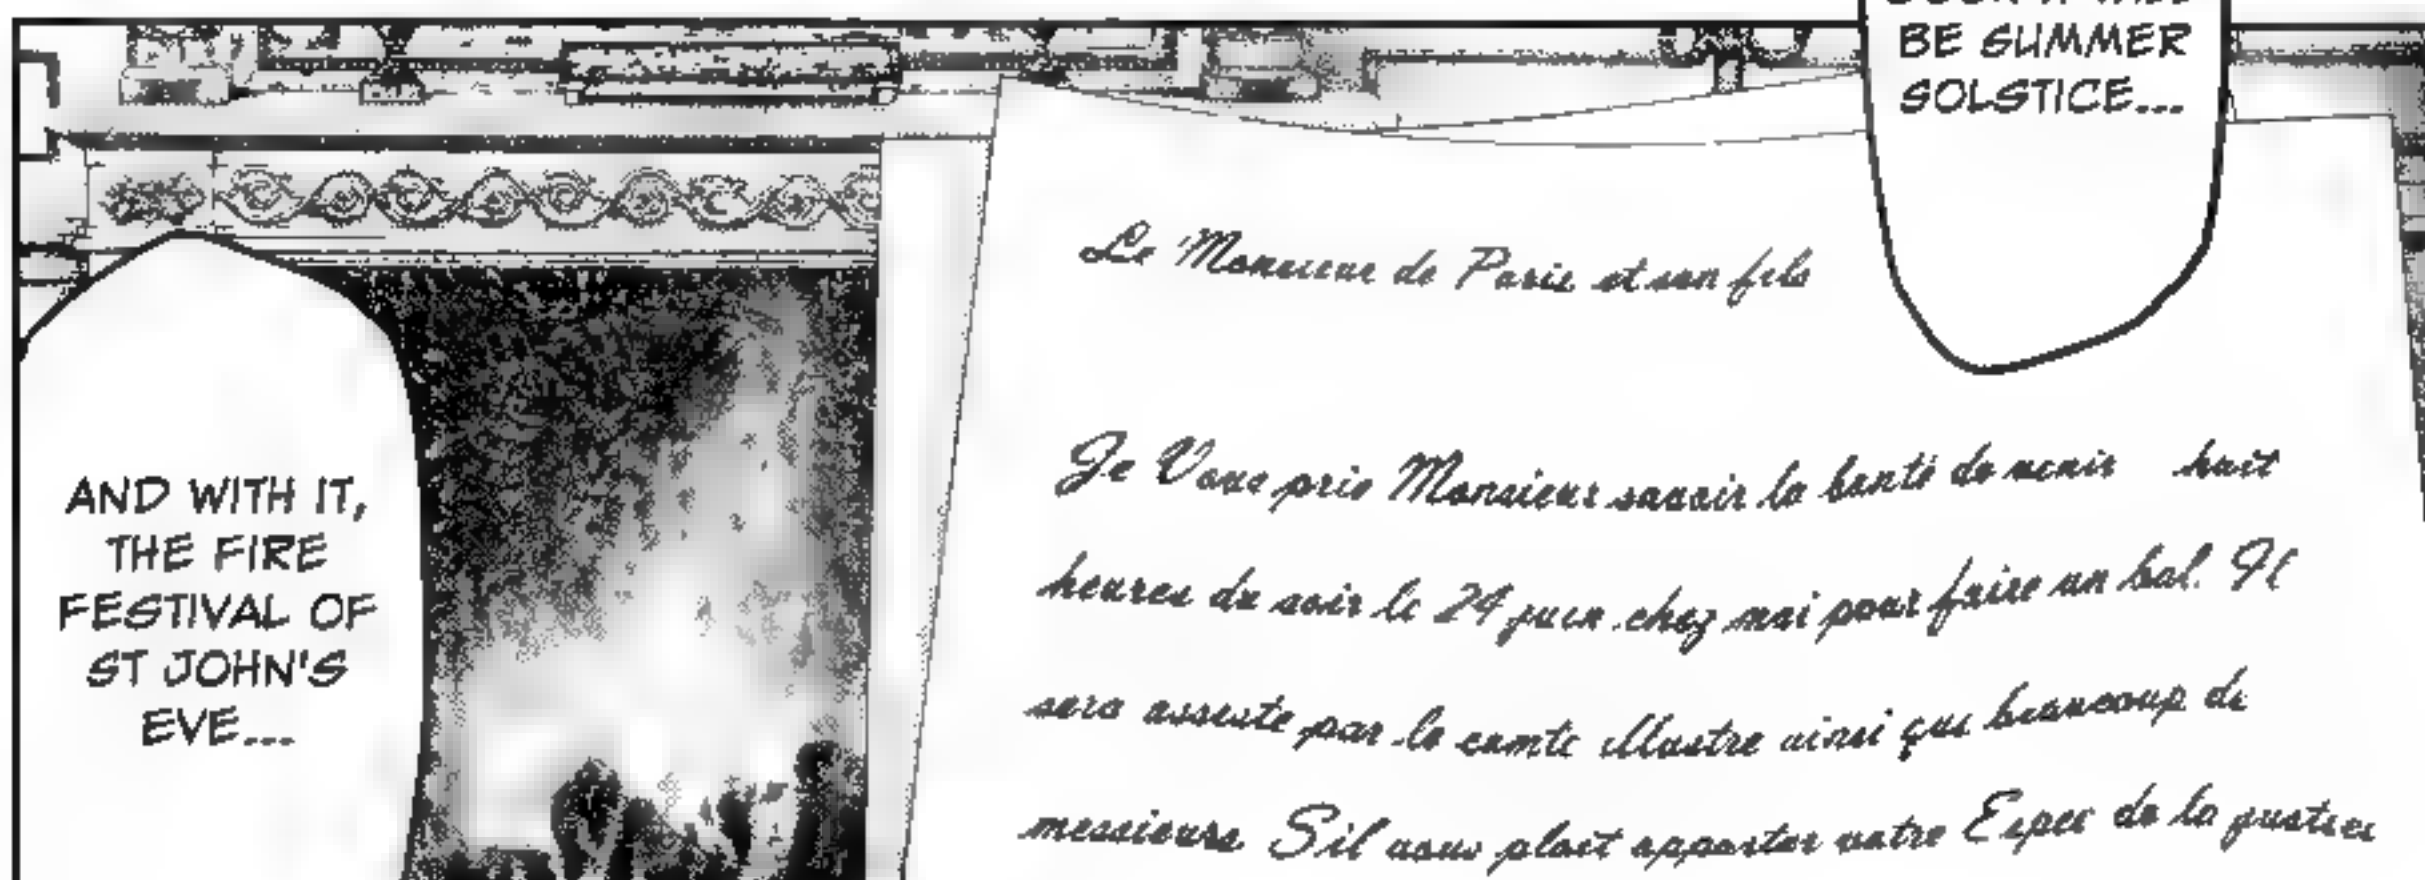 BE SUMMER
SOLSTICE...
AND WITH IT,
THE FIRE
FESTIVAL OF
ST JOHN'S
EVE...
Le Monsieur de Paris et son fils
Je Vous prie Monsieur savoir la bonté de venir huit
heures du soir le 24 juin chez moi pour faire un bal. Il
sera assiste par le comte illustre ainsi que beaucoup de
messieurs S'il vous plait apporter votre Epee de la justice